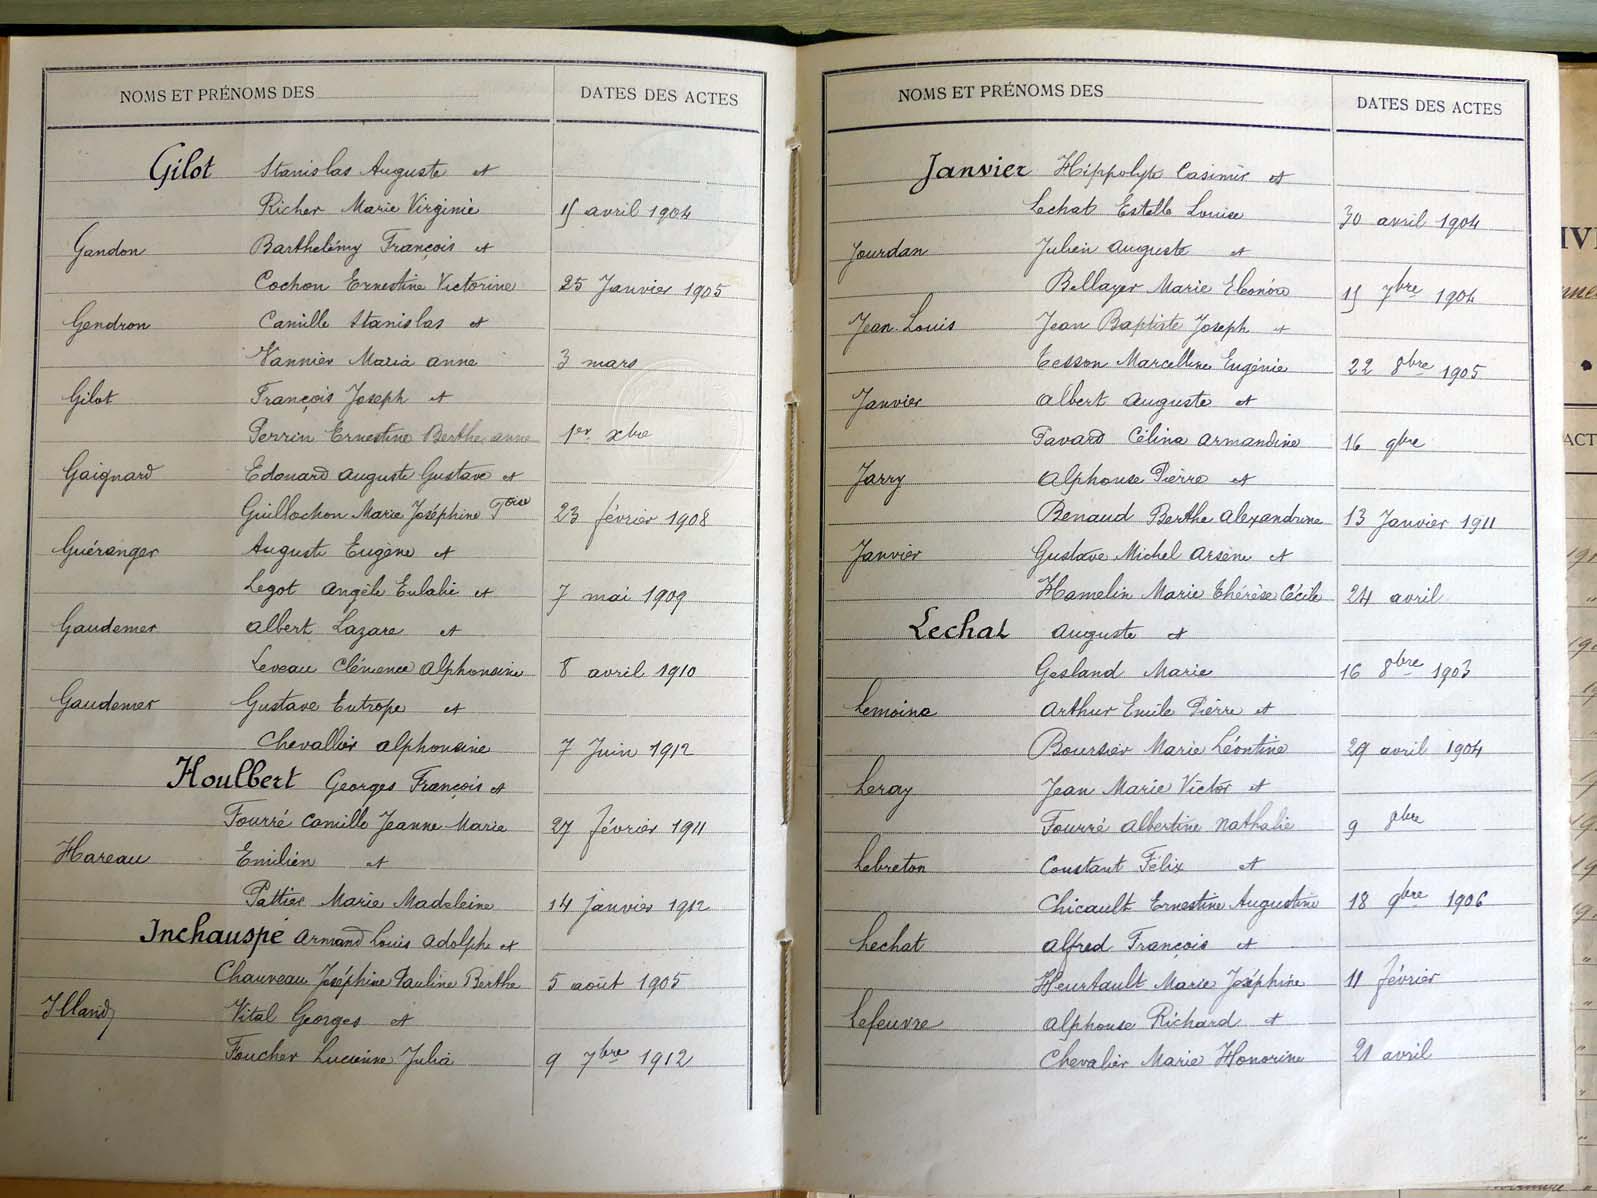 NOMS ET PRÉNOMS DES
DATES DES ACTES
Gilot Stanislas Auguste et
Richer Marie Virginie 15 avril 1904
Gandon Barthélémy François et
Cochon Ernestine Victorine 25 Janvier 1905
Gendron Camille Stanislas et
Vannier Maria anne 3 mars
Gilot François Joseph et
Perrin Ernestine Berthe anne 1er xbre
Gaignard Edouard Auguste Gustave et
Guillochon Marie Joséphine 23 février 1908
Guéranger Auguste Eugène et
Legot Angèle Eulalie et 7 mai 1909
Gaudemer Albert Lazare et
Leveau Clémence Alphonsine 8 avril 1910
Gaudemer Gustave Eutrope et
Chevallier alphonsine 7 Juin 1912
Houlbert Georges François et
Fourré Camille Jeanne Marie 27 février 1911
Hareau Emilien et
Pattier Marie Madeleine 14 Janvier 1912
Inchauspé Armand Louis Adolphe et
Chauveau Joséphine Pauline Berthe 5 août 1905
Illand Vital Georges et
Foucher Lucienne Julia 9 7bre 1912
NOMS ET PRÉNOMS DES
DATES DES ACTES
Janvier Hippolyte Casimir et
Lechat Estelle Louise 30 avril 1904
Jourdan Julien Auguste et
Bellayer Marie Eléonore 15 7bre 1904
Jean-Louis Jean Baptiste Joseph et
Tesson Marcelline Eugénie 22 8bre 1905
Janvier Albert Auguste et
Pavard Célina Armandine 16 9bre
Jarry Alphonse Pierre et
Renaud Berthe Alexandrine 13 Janvier 1911
Janvier Gustave Michel Arsène et
Hamelin Marie Thérèse Cécile 24 avril
Lechat Auguste et
Gesland Marie 16 8bre 1903
Lemoine Arthur Emile Pierre et
Boursier Marie Léontine 29 avril 1904
Leray Jean Marie Victor et
Fourré Albertine Nathalie 9
Lebreton Constant Félix et
Chicault Ernestine Augustine 18 9bre 1906
Lechat Alfred François et
Heurtault Marie Joséphine 11 février
Lefeuvre Alphonse Richard et
Chevalier Marie Honorine 21 avril